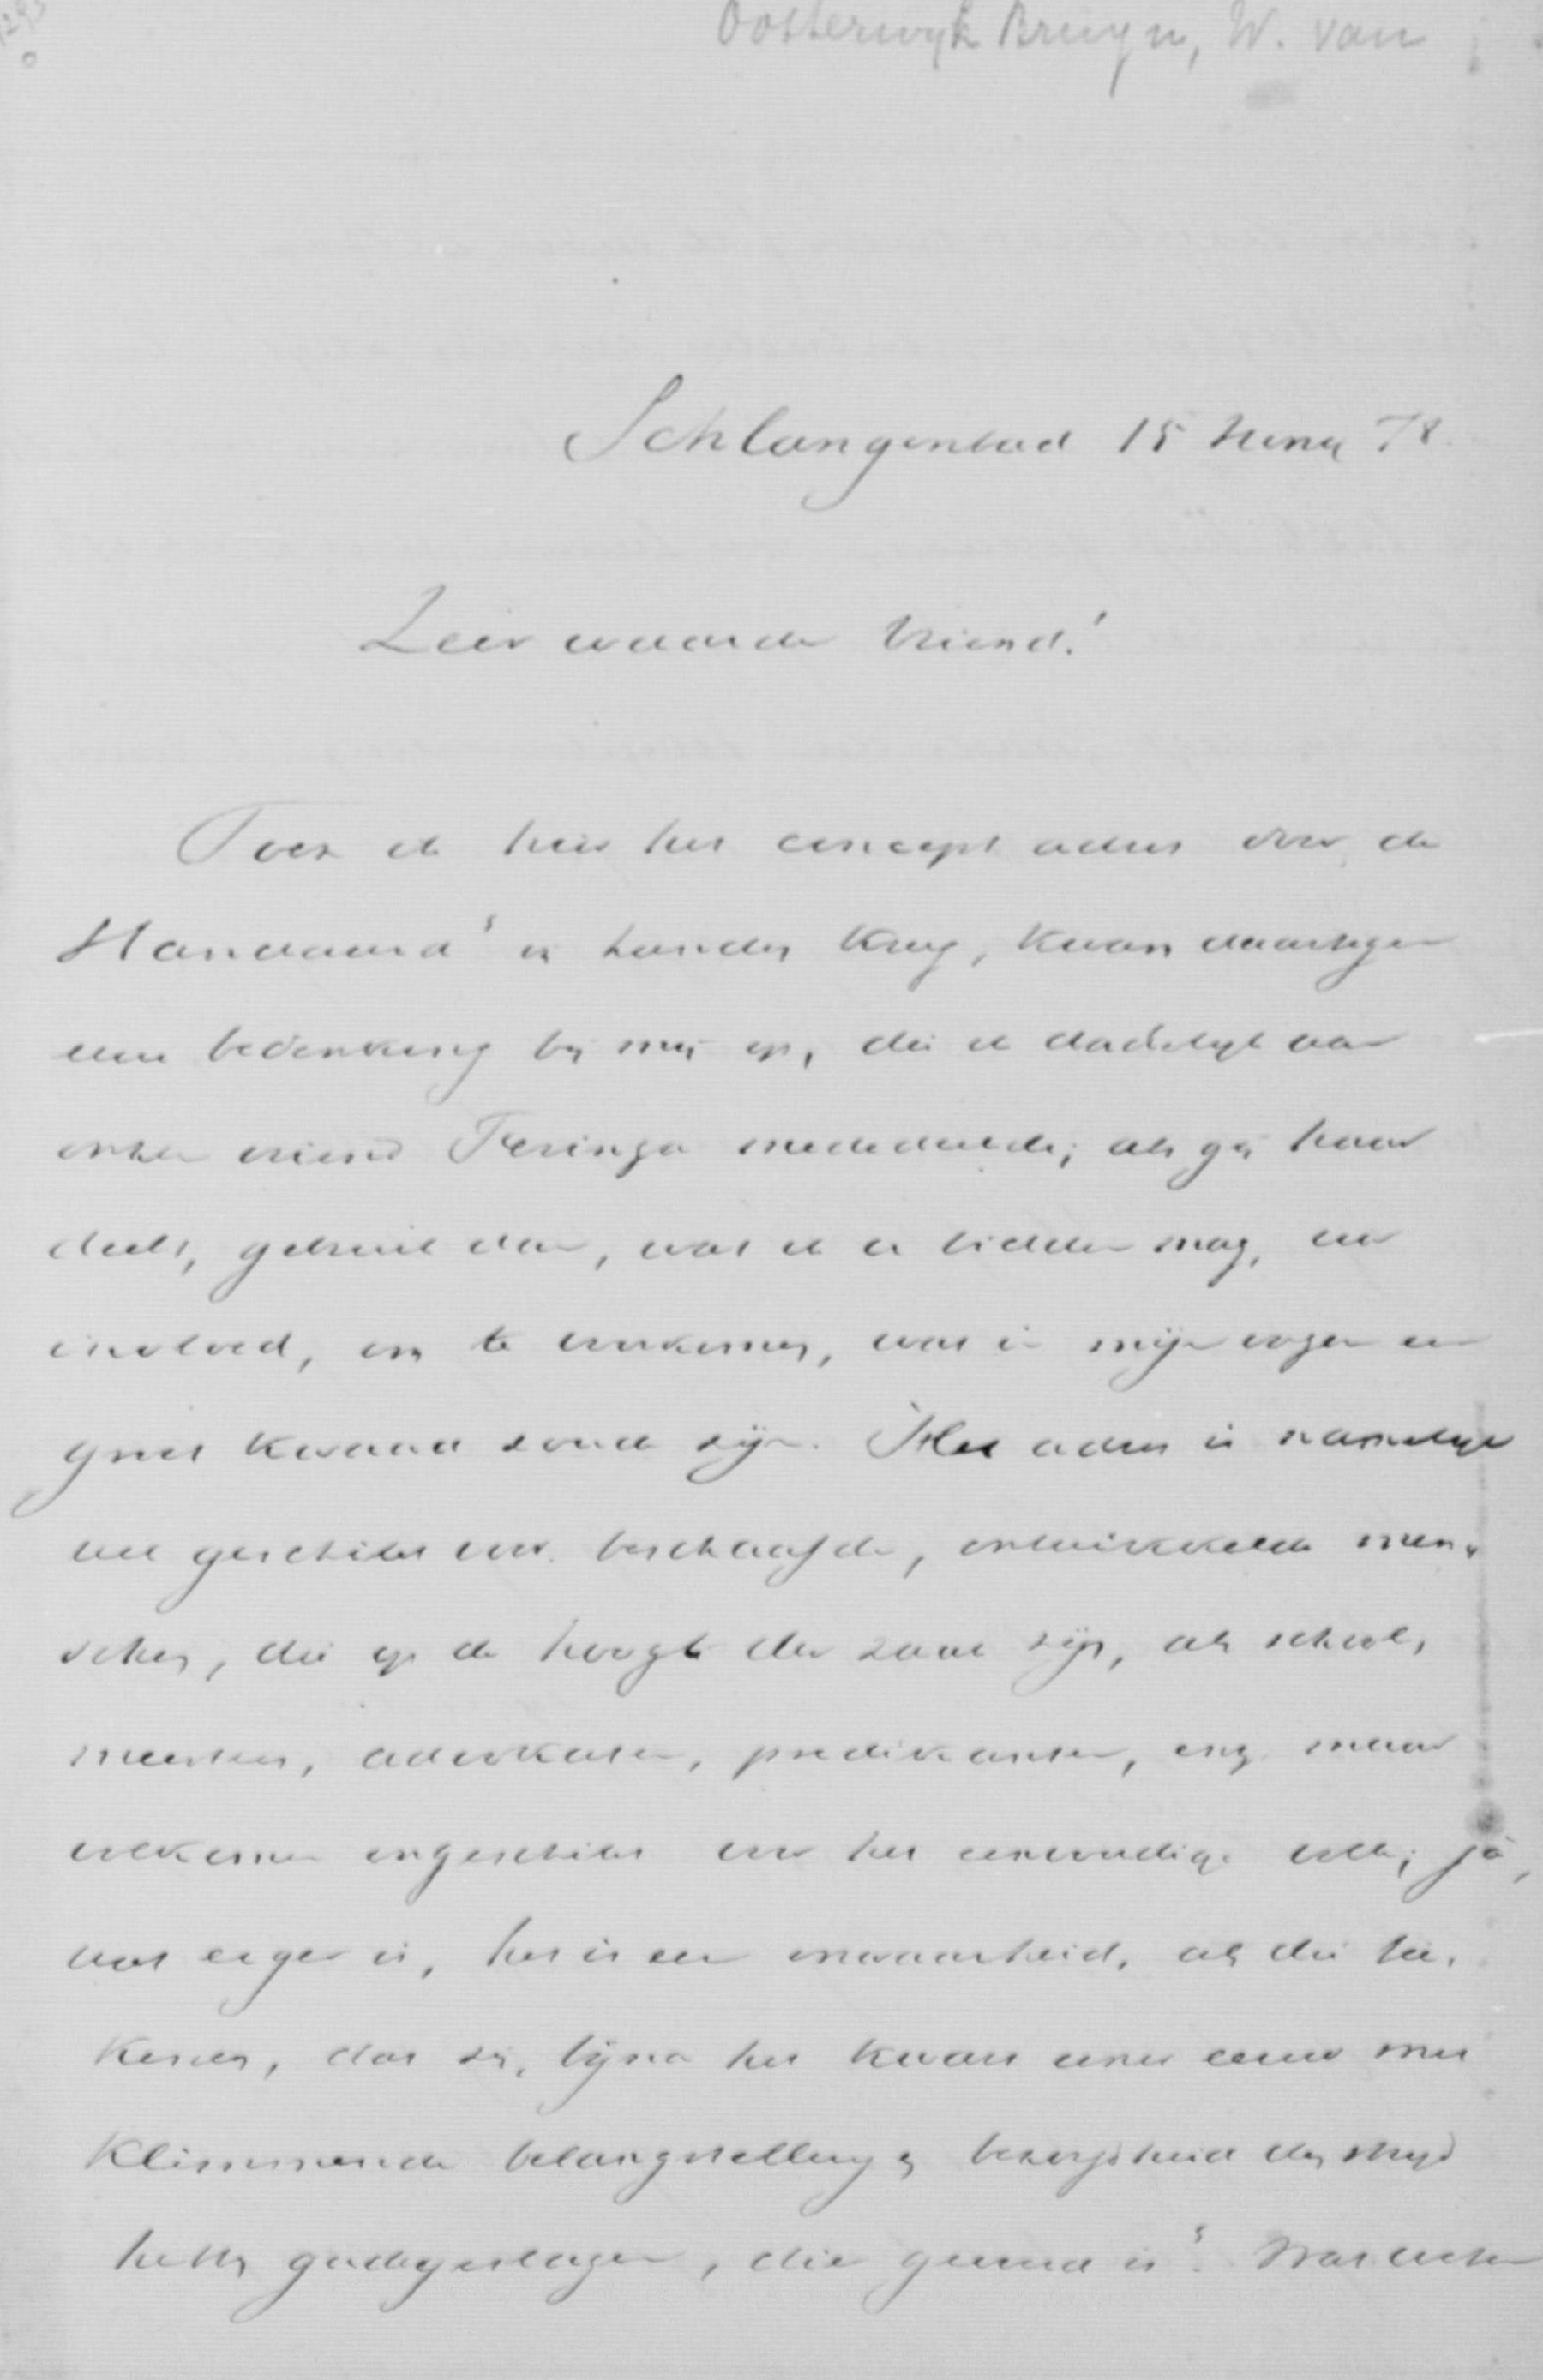 Oosterwijk Bruyn, W. van
Schlangenbad 15 Juny 78.
Zeer waarde Vriend!
Toen ik hier het concept adres door de
Standaard in handen kreeg, kwam daartegen
eene bedenking bij mij op, die ik dadelijk aan
onzen vriend Feringa mededeelde; als gij haar
deelt, gebruik dan, wat ik u bidden mag, uw
invloed, om te voorkomen, wat in mijn oogen een
groot kwaad zoude zijn. Het adres is namelijk
wel geschikt voor beschaafde, ontwikkelde men-
schen, die op de hoogte der zaak zijn, als school-
meesters, advokaten, predikanten, enz. maar
volkomen ongeschikt voor het eenvoudige volk; ja,
wat erger is, het is een onwaarheid, als die tee-
kenen, dat zij, bijna het kwart eener eeuw met
klimmende belangstelling en bezorgdheid den strijd
hebben gadegeslagen, die gevoerd is. Wat weten